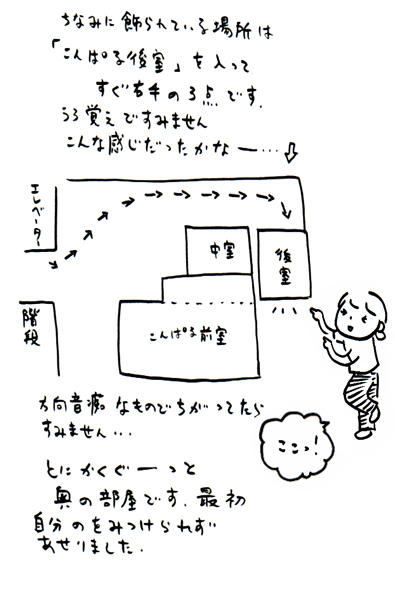 ちなみに飾られている場所は
「こんぱる後室」を入って
すぐ右手の3点です.
うろ覚えですみません
こんな感じだったかなー…
エレベーター
中室
後室
階段
こんぱる前室
方向音痴なものでちがってたら
すみません…
ここっ!
とにかくぐーっと
奥の部屋です.最初
自分のをみつけられず
あせりました.